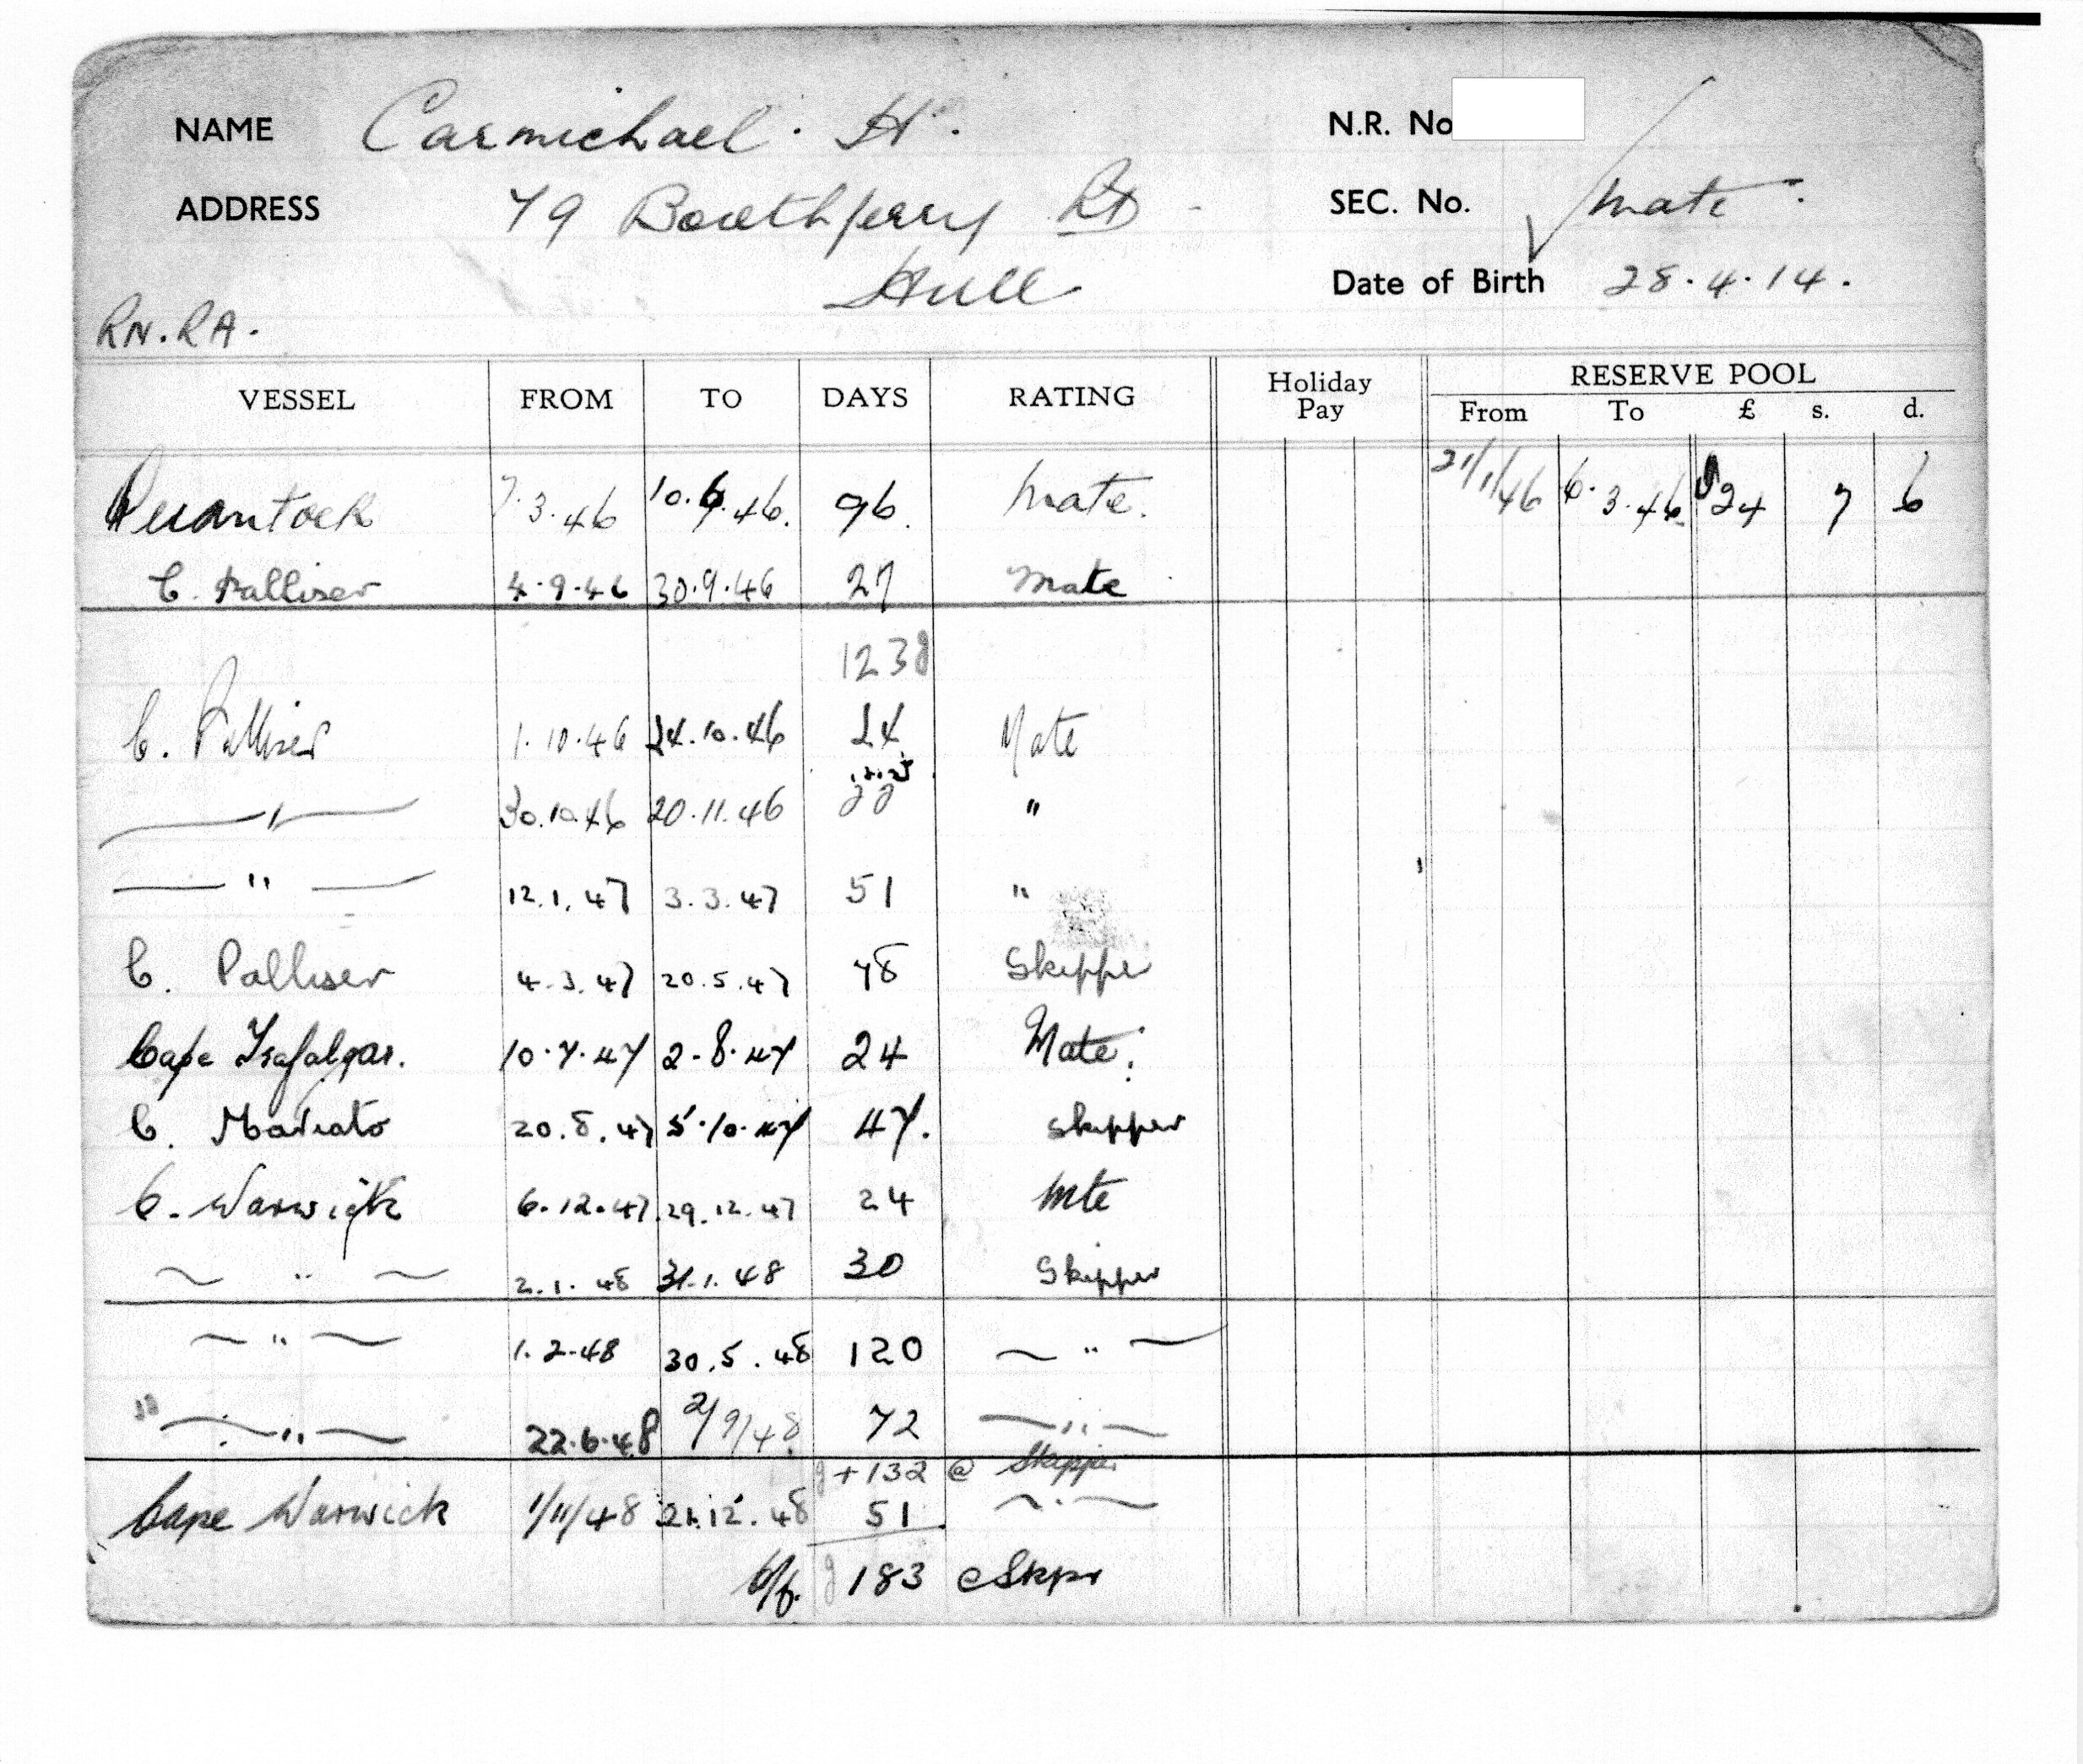 NAME Carmichael. H. N.R. No
ADDRESS 79 Boothferry Rd SEC. No. Mate
Hull Date of Birth 28.4.14.
RN.RA.
VESSEL FROM TO DAYS RATING Holiday Pay RESERVE POOL
From To £ s. d.
Quantock 7.3.46 10.6.46. 96. Mate. 21/1/46 6.3.46 24 7 6
C. Palliser 4.9.46 30.9.46 27 Mate
123
C. Palliser 1.10.46 24.10.46 24 Mate
" 30.10.46 20.11.46 22 "
" 12.1.47 3.3.47 51 "
C. Palliser 4.3.47 20.5.47 78 Skipper
Cape Trafalgar. 10.7.47 2.8.47 24 Mate.
C. 20.8.47 5.10.47 47. Skipper
C. Warwick 6.12.47 29.12.47 24 Mte
" 2.1.48 31.1.48 30 Skipper
" 1.2.48 30.5.48 120 "
" 22.6.48 2/9/48 72 "
+132 @ Skipper
Cape Warwick 1/11/48 21.12.48 51 "
183 Skpr